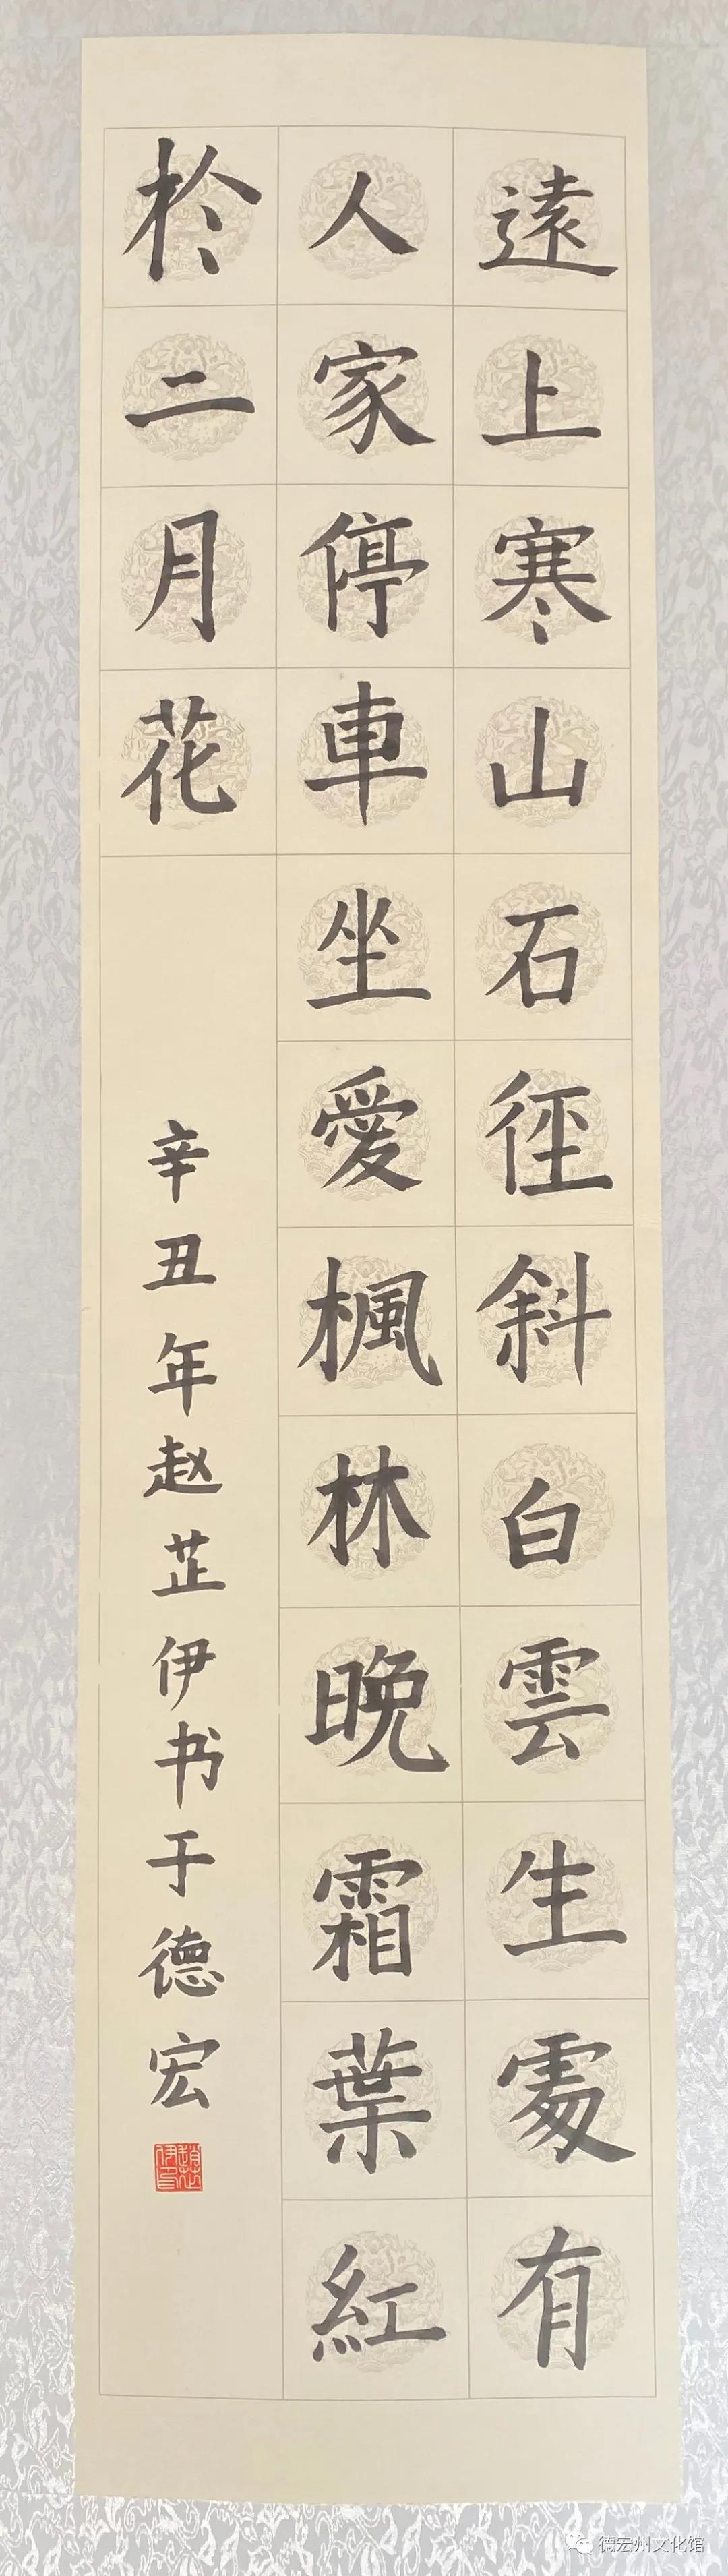 遠上寒山石徑斜白雲生處有
人家停車坐愛楓林晚霜葉紅
於二月花
辛丑年赵芷伊书于德宏
德宏州文化馆